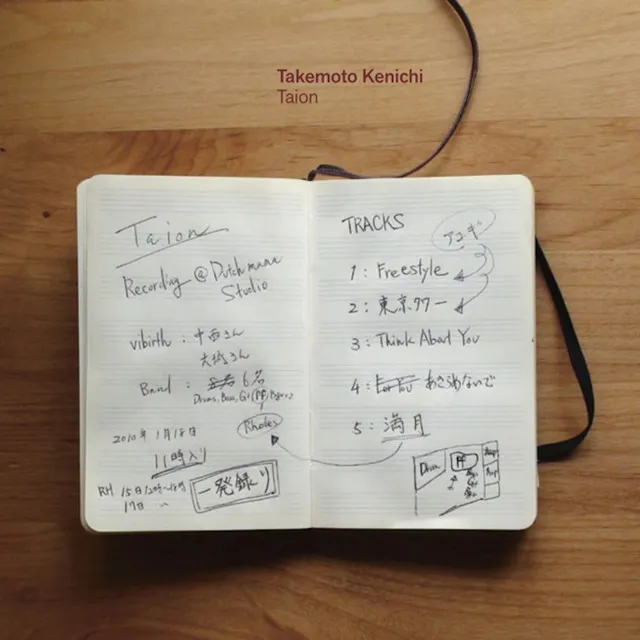 Takemoto Kenichi
Taion
Taion
Recording @ Dutchmann
Studio
vibirth : 中西さん
大城さん
Band : 6名
Drums, Bass, Gt, (PF),
Rhodes
2010年 1月18日
11時入り
RH 15日 12時〜18時
17日 〃
一発録り
TRACKS
アコギ
1 : Freestyle
2 : 東京タワー
3 : Think About You
4 : For You あきらめないで
5 : 満月
PF